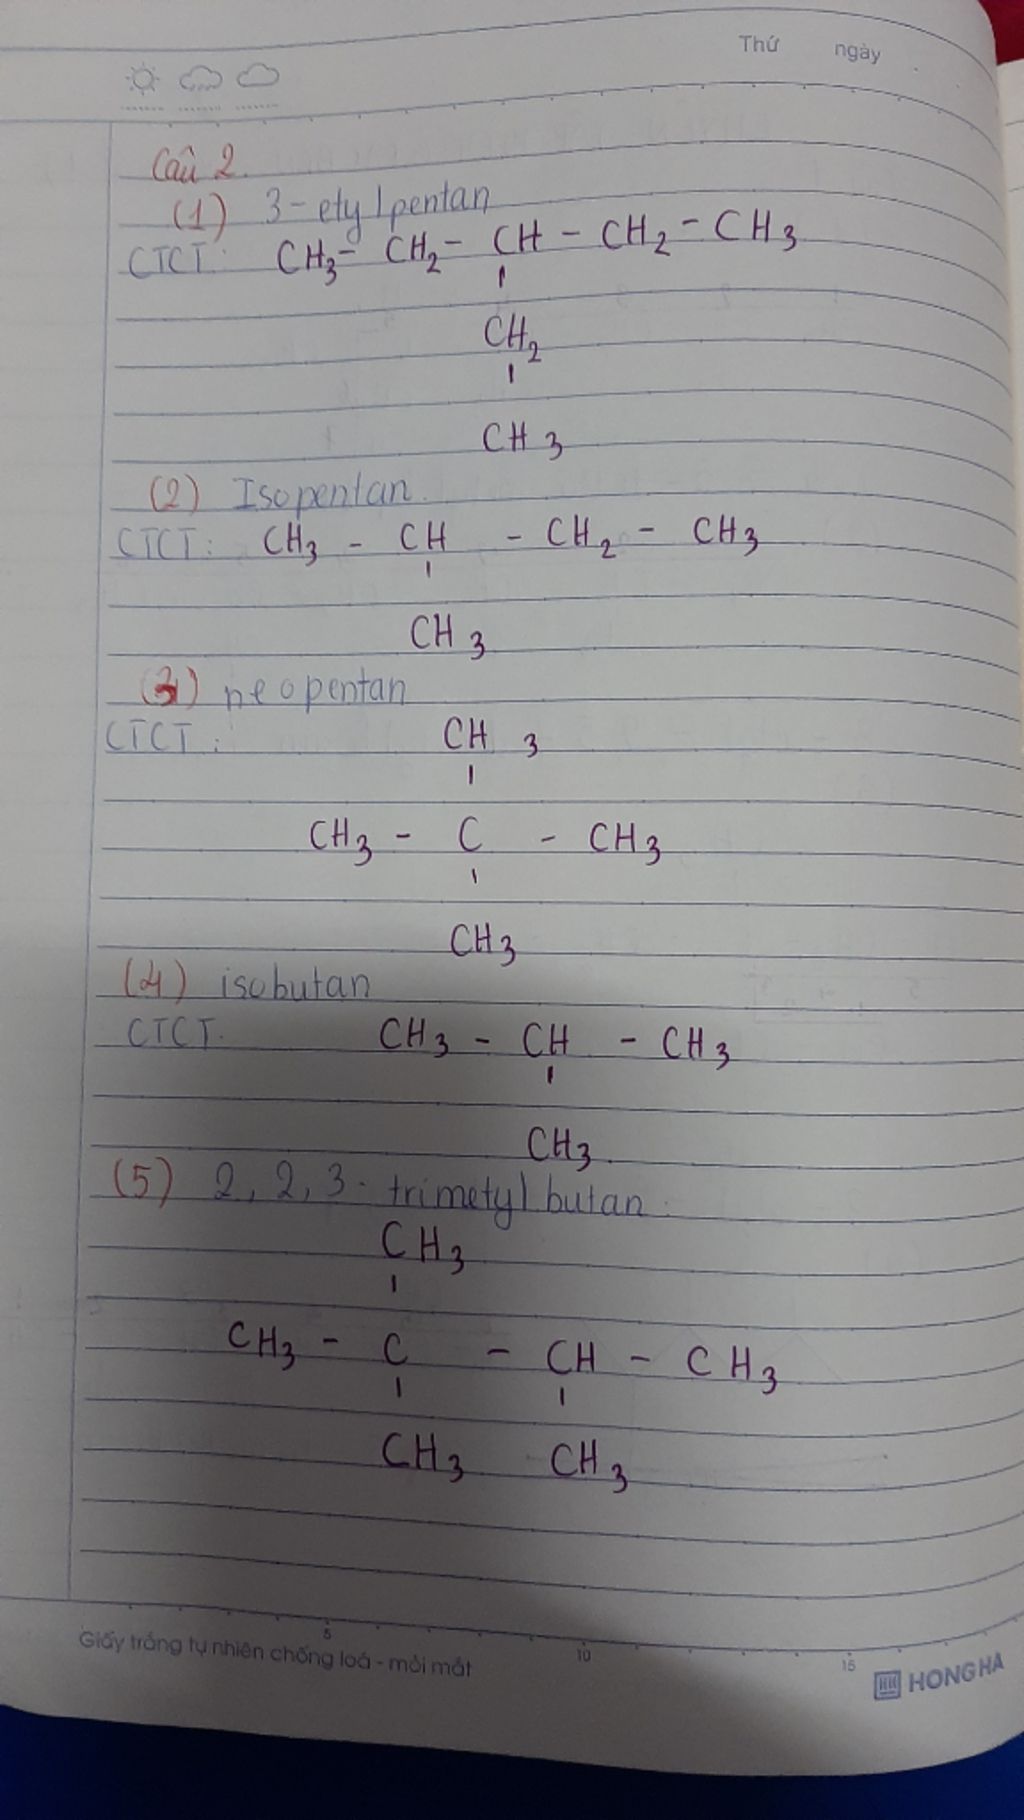 Thứ ngày
Câu 2.
(1) 3-etylpentan
CTCT: CH3- CH2- CH - CH2 - CH3
CH2
CH3
(2) Isopentan.
CTCT: CH3 - CH - CH2 - CH3
CH3
(3) neopentan
CTCT: CH3
CH3 - C - CH3
CH3
(4) isobutan
CTCT. CH3 - CH - CH3
CH3.
(5) 2, 2, 3-trimetylbutan.
CH3
CH3 - C - CH - CH3
CH3 CH3
5 10 15
Giấy trắng tự nhiên chống loá - mỏi mắt
HONG HA